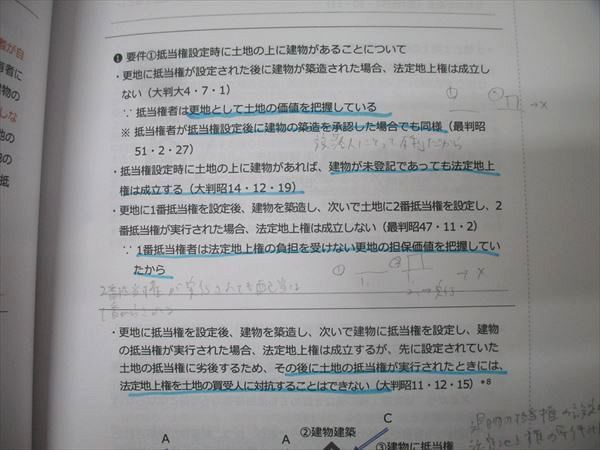 者が自
有者に
建物の
しな
地の
旧の
抵
❶ 要件①抵当権設定時に土地の上に建物があることについて
・更地に抵当権が設定された後に建物が築造された場合、法定地上権は成立し
ない（大判大4・7・1）
∵ 抵当権者は更地として土地の価値を把握している
※ 抵当権者が抵当権設定後に建物の築造を承認した場合でも同様（最判昭
51・2・27）
・抵当権設定時に土地の上に建物があれば、建物が未登記であっても法定地上
権は成立する（大判昭14・12・19）
・更地に1番抵当権を設定後、建物を築造し、次いで土地に2番抵当権を設定し、2
番抵当権が実行された場合、法定地上権は成立しない（最判昭47・11・2）
∵ 1番抵当権者は法定地上権の負担を受けない更地の担保価値を把握してい
たから
① ② → ×
2番抵当権が実行されても配当は
1番から
・更地に抵当権を設定後、建物を築造し、次いで建物に抵当権を設定し、建物
の抵当権が実行された場合、法定地上権は成立するが、先に設定されていた
土地の抵当権に劣後するため、その後に土地の抵当権が実行されたときには、
法定地上権を土地の買受人に対抗することはできない（大判昭11・12・15）*8
②建物建築
C
A
A
③建物に抵当権